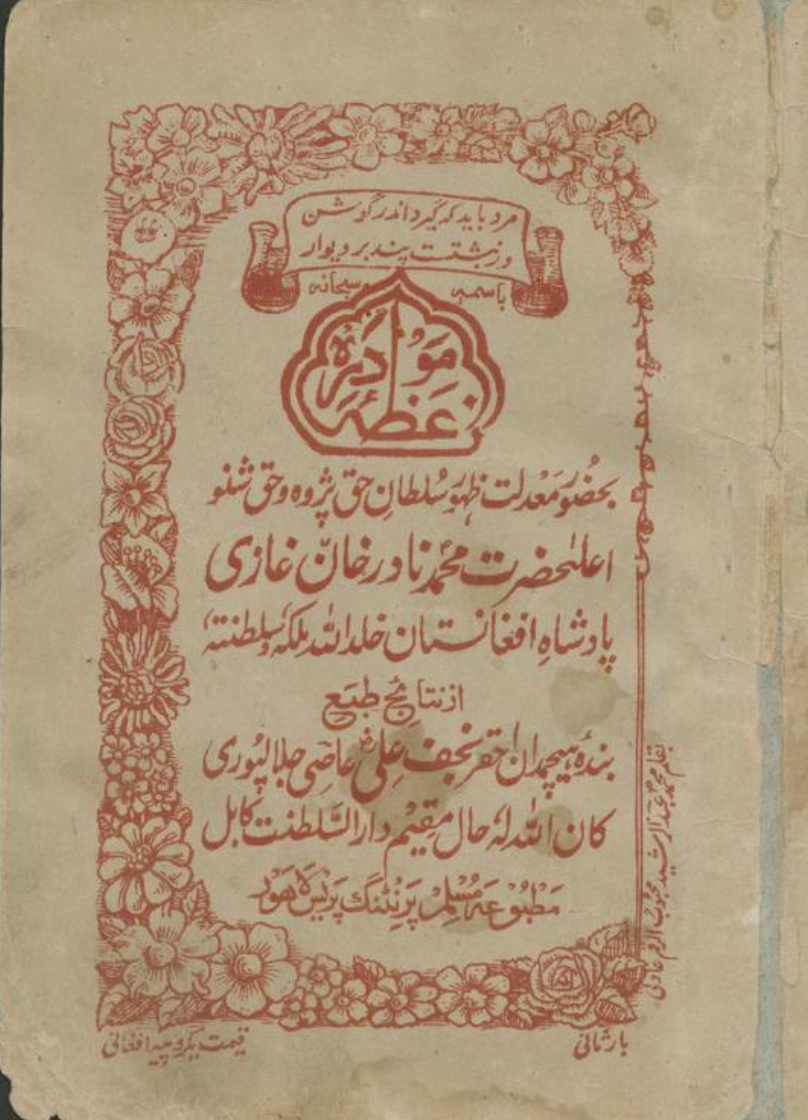 مرد باید که گیرد اندر گوش
ور نبشتست پند بر دیوار
باسمہ سبحانہ
موعظہ نادرہ
بحضور معدلت ظہور سلطان حق پژوہ و حق شنو
اعلیحضرت محمد نادر خان غازی
پادشاہِ افغانستان خلد اللہ ملکہٗ و سلطنتہٗ
از نتائج طبع
بندہ ہیچمدان احقر نجف علی خاں عاصی جلالپوری
کان اللہ لہٗ حال مقیم دار السلطنت کابل
مطبوعہ مسلم پرنٹنگ پریس لاہور
بقلم محمد عبدالرشید محبوب رقم عادلی
بار ثانی
قیمت یکروپیہ افغانی